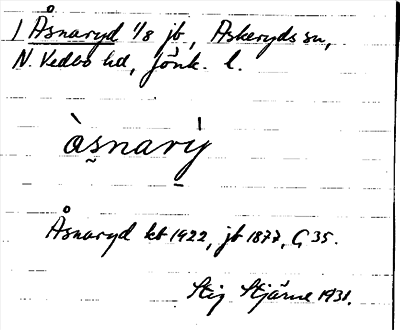 1 Åsnaryd 1/8 jb, Askeryds sn,
N. Vedbo hd, Jönk. l.
àsnarỳ
Åsnaryd kb 1922, jb 1877, G 35.
Stig Stjärne 1931.